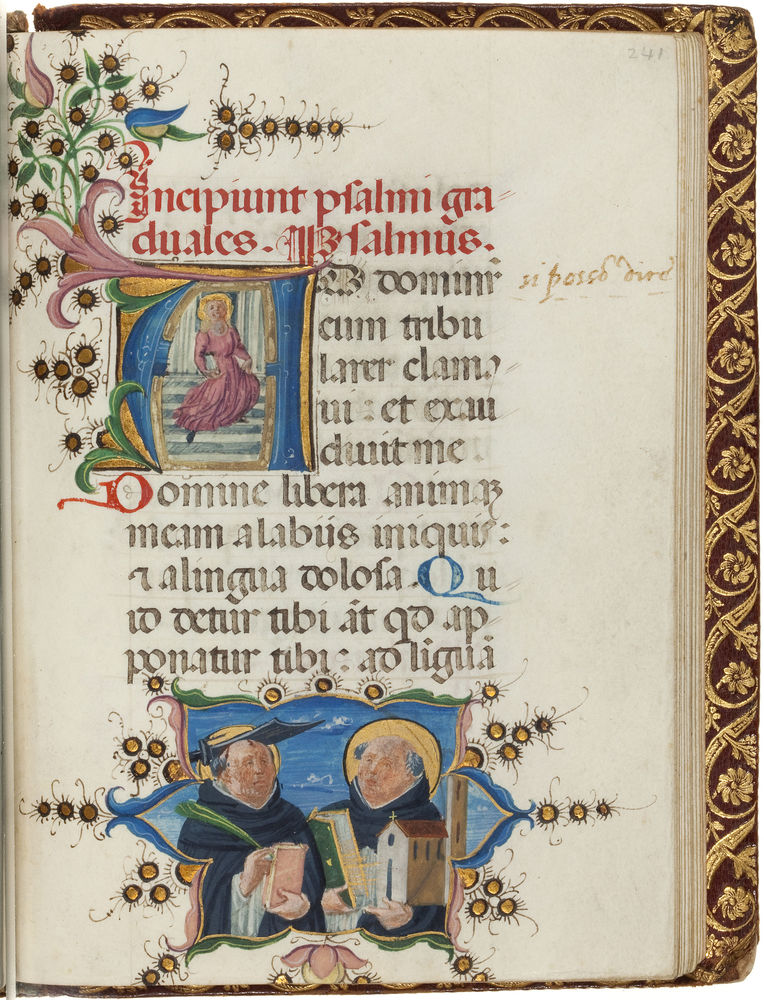 241
Incipiunt psalmi gra
duales. Psalmus.
AD dominū
cum tribu
larer clama
ui: et exau
diuit me
Domine libera animaʒ
meam a labiis iniquis:
⁊ a lingua dolosa. Qu
id detur tibi āt qđ ap
ponatur tibi: ad liguā
si posso dire